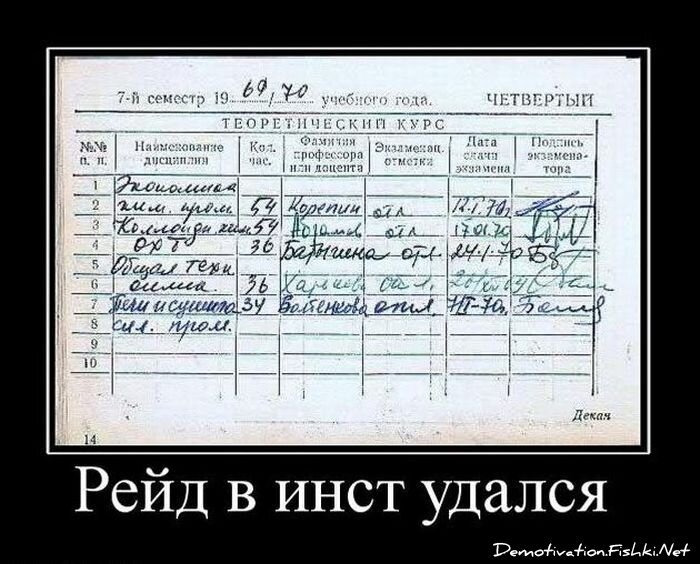 7-й семестр 1969/70 учебного года. ЧЕТВЕРТЫЙ
ТЕОРЕТИЧЕСКИЙ КУРС
№№ п. п. Наименование дисциплин Кол. час. Фамилия профессора или доцента Экзаменац. отметки Дата сдачи экзамена Подпись экзаменатора
1 Экономика
2 хим. пром. 54 Корепин отл 12.1.70г
3 Коллоидн хим 54 отл 17.01.70
4 ОХТ 36 Батыгина отл. 24.1.70
5 Общая техн
6 36
7 Печи и сушила 34 отл.
8 сил. пром.
9
10
Декан
14
Рейд в инст удался
Demotivation.Fishki.Net